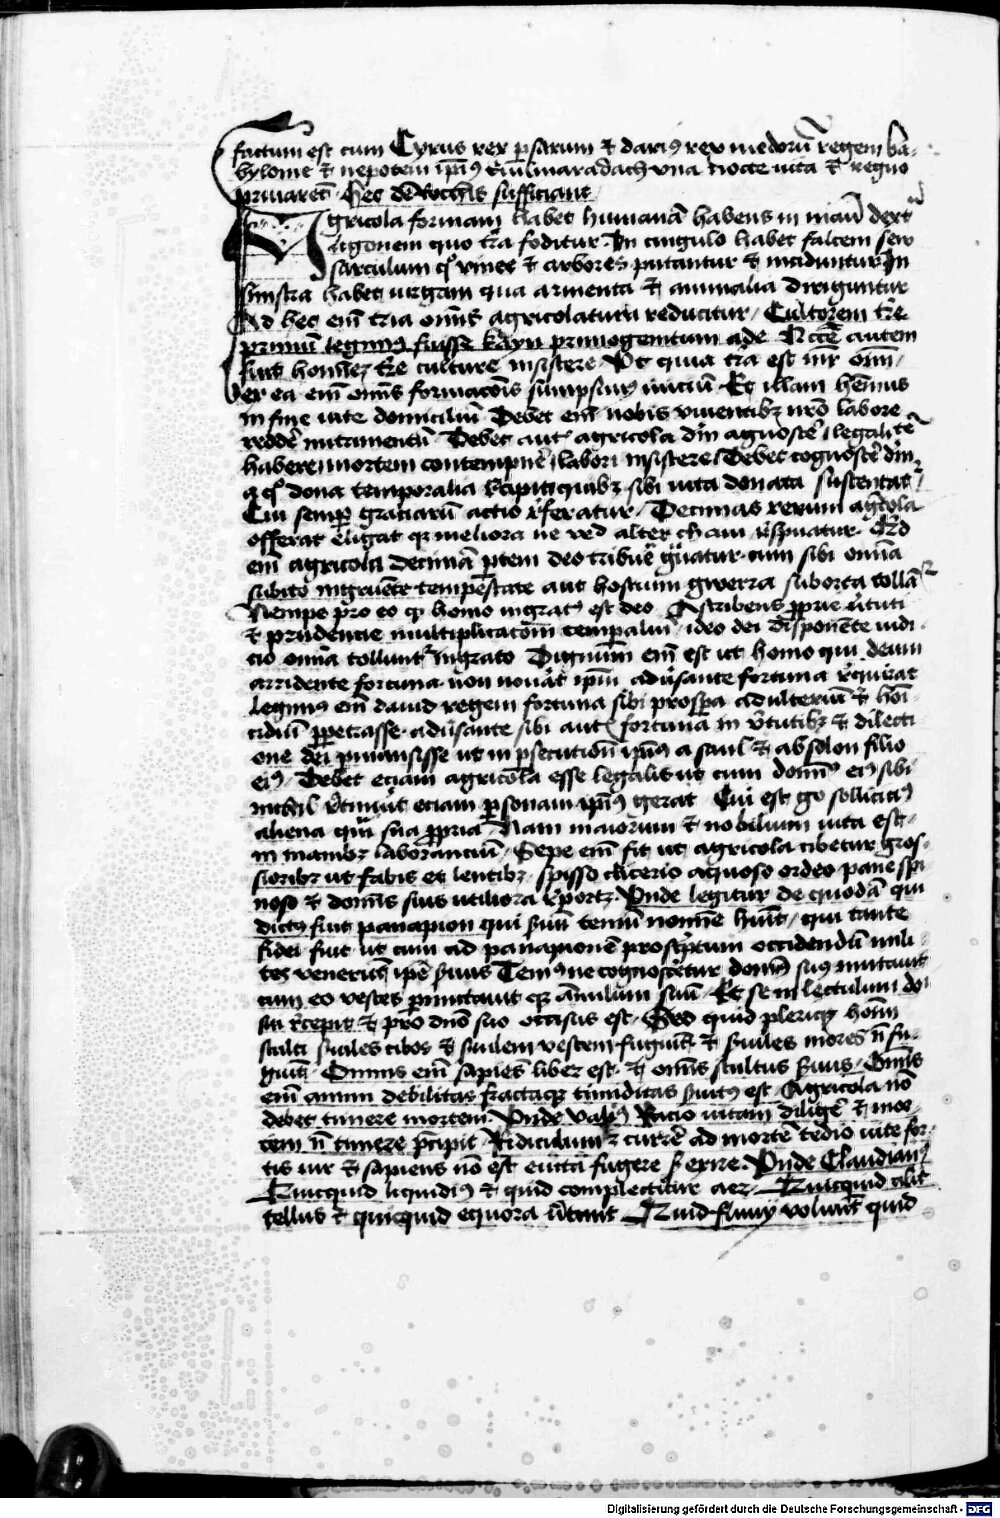 factum est cum Cyrus rex psarum et dariꝰ rex medoru᷑ regem ba-
bylonie et nepotem ip̅iꝰ euilmaradach vna nocte vita et regno
priuaret. Hec de rochis sufficiant.
Agricola formam habet humana᷑ habens in manu dext
ligonem quo t̅ra foditur. In cingulo habet falcem seu
sarculum q̅ vinee et arbores putantur et inciduntur In
sinistra habet virgam qua armenta et animalia diriguntur
Ad hec em̅ tria omnis agricolatura reducitur. Cultorem t̅re
primu̅ legimꝰ fuisse kayn primogenitum ade. Nc̅c̅e autem
fuit ho̅i̅e̅z̅ t̅re culture insistere. Vt quia t̅ra est m̅r om̅
per ea em̅ om̅s formacois sumpsimꝰ iniciu̅. Et illam he̅mus
in fine vite domiciliu̅. Debet em̅ nobis viuentibꝫ nro̅ labore
redde̅ nutrimentu̅. Debet aut̅ agricola dm̅ agnosce̅, legalitate̅
habere, mortem contempne̅, labori insistere, Debet cognosce̅ dm̅
a q̅ dona temporalia recipit quibꝫ sibi vita donata sustentat̅
Cui semꝑ graciaru̅ actio referatur. Decimas rerum agricola
offerat eligat qꝫ meliora ne ved alter cham respuatur. Q̅d
em̅ agricola decima̅ ptem deo tribue̅ gͣuatur. cum sibi om̅ia
subito ingruente tempestate aut hostium gwerra suborta tolla̅tur
Nempe pro eo qꝫ homo ingratꝰ est deo. Ascribens ꝓprie v̅tuti
et prudencie multiplicaco̅m tempaliu̅. ideo dei dispone̅te iudi-
cio om̅ia tolluntur ingrato Dignum em̅ est vt homo qui deum
arridente fortuna non nouit ip̅m adu̅sante fortuna requirat
Legimꝰ em̅ dauid regem fortuna sibi prospa adulteriu̅ et ho̅i-
cidiu̅ ꝑpetrasse. adu̅sante sibi aut̅ fortuna in v̅tutibꝫ et dilecti-
one dei ꝑmansisse vt in psecutione ip̅iꝰ a saul et absolon filio
eiꝰ. Debet eciam agricola esse legalis vt cum domi̅ꝰ eiꝰ sibi
nichil re̅tinuit eciam ꝑsonam ip̅iꝰ gerat Cui est go sollicitiꝰ
aliena qm̅ sua ꝓpria. Nam maiorum et nobilium vita est
in manibꝫ laborantiu̅. Sepe em̅ fit vt agricola cibetur gros-
sioribꝫ vt fabis et lentibꝫ. spisso cicerio aquoso ordeo pane spi-
noso et domi̅s suis vtiliora reportꝫ. Vnde legitur de quoda̅ qui
dictꝰ fuit panapion qui suu̅ temu̅ nomi̅e huit. qui tante
fidei fuit vt cum ad panapione̅ proscptum occidendu̅ mili-
tes venerint ip̅e suus Temꝰ ne cognosce̅tur. domi̅ suꝰ mutauit
cum eo vestes ꝑmutauit qꝫ a̅nulum suu̅. Et se in lectulum do̅i
sui recepit et pro dn̅o suo occisus est. Sed quid pleriqꝫ ho̅im
stulti suiles cibos et suilem vestem fugiu̅t. et suiles mores n̅ fu-
giu̅t. Omnis em̅ sapie̅s liber est. et om̅is stultus suus. Om̅s
em̅ animi debilitas fractaqꝫ timiditas suitꝰ est. Agricola no̅
debet timere mortem. Vnde Valꝰ Racio vitam dilige̅ et mor-
tem n̅ timere p̅cipit. Ridiculum ꝫ curre̅ ad morte̅ tedio vite for-
tis vir et sapiens no̅ est e vita̅ fugere sꝫ exire. Vnde Claudianꝰ
Quicquid liquidiꝰ et quid complectitur aer. Quicquid alit
tellus et quicquid equora v̅tunt Quid fluuij voluu̅t quid